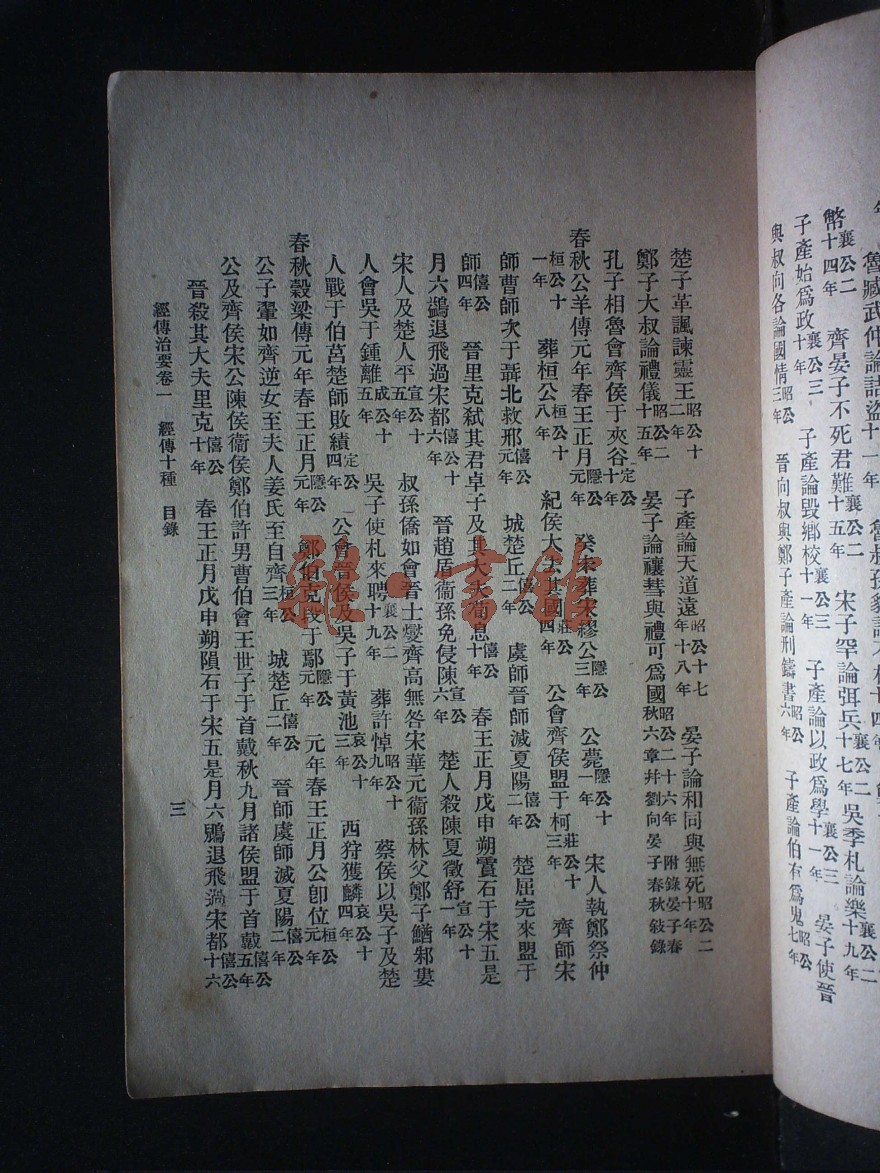 年 魯臧武仲論詰盜十一年 魯叔孫豹
幣襄公二十四年 齊晏子不死君難襄公二十五年 宋子罕論弭兵襄公二十七年 吳季札論樂襄公二十九年
子產始爲政襄公三十年 子產論毀鄉校襄公三十一年 子產論以政爲學襄公三十一年 晏子使晉
與叔向各論國情昭公三年 晉向叔與鄭子產論刑鑄書昭公六年 子產論伯有爲鬼昭公七年
楚子革諷諫靈王昭公十二年 子產論天道遠昭公十七年十八年 晏子論和同與無死昭公二十年
鄭子大叔論禮儀昭公二十五年 晏子論禳彗與禮可爲國昭公二十六年附錄晏子春秋六章幷劉向晏子春秋敍錄
孔子相魯會齊侯于夾谷定公十年
春秋公羊傳元年春王正月隱公元年 癸未葬宋繆公隱公三年 公薨隱公十一年 宋人執鄭祭仲
桓公十一年 葬桓公桓公十八年 紀侯大去其國莊公四年 公會齊侯盟于柯莊公十三年 齊師宋
師曹師次于聶北救邢僖公元年 城楚丘僖公二年 虞師晉師滅夏陽僖公二年 楚屈完來盟于
師僖公四年 晉里克弒其君卓子及其大夫荀息僖公十年 春王正月戊申朔霣石于宋五是
月六鷁退飛過宋都僖公十六年 晉趙盾衞孫免侵陳宣公六年 楚人殺陳夏徵舒宣公十一年
宋人及楚人平宣公十五年 叔孫僑如會晉士燮齊高無咎宋華元衞孫林父鄭子鰌邾婁
人會吳于鍾離成公十五年 吳子使札來聘襄公二十九年 葬許悼公昭公十九年 蔡侯以吳子及楚
人戰于伯莒楚師敗績定公四年 公會晉侯及吳子于黃池哀公十三年 西狩獲麟哀公十四年
春秋穀梁傳元年春王正月隱公元年 鄭伯克段于鄢隱公元年 元年春王正月公卽位桓公元年
公子翬如齊逆女至夫人姜氏至自齊桓公三年 城楚丘僖公二年 晉師虞師滅夏陽僖公二年
公及齊侯宋公陳侯衞侯鄭伯許男曹伯會王世子于首戴秋九月諸侯盟于首戴僖公五年
晉殺其大夫里克僖公十年 春王正月戊申朔隕石于宋五是月六鶂退飛過宋都僖公十六
經傳治要卷一 經傳十種 目錄 三